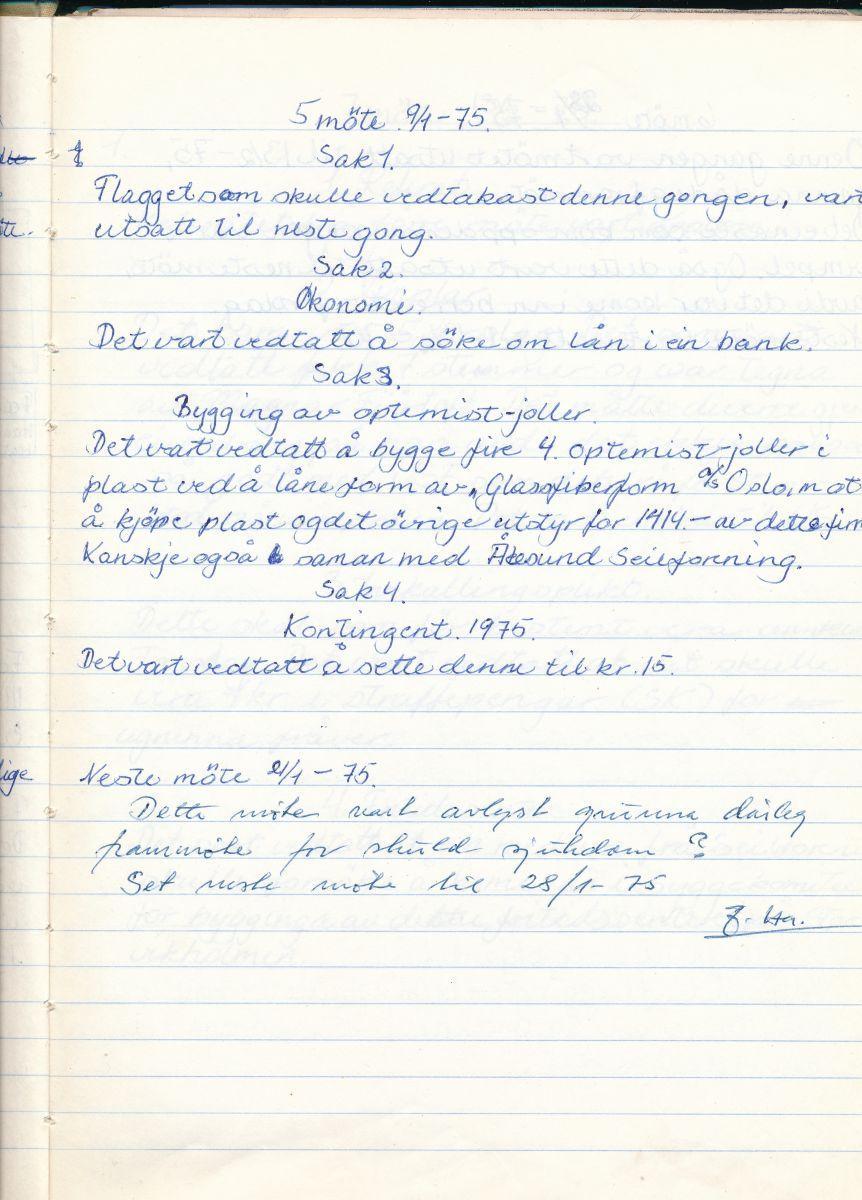 5 möte 9/1-75.
Sak 1.
Flagget som skulle vedtakast denne gongen, vart
utsatt til neste gong.
Sak 2.
Ökonomi.
Det vart vedtatt å söke om lån i ein bank.
Sak 3.
Bygging av optemist-joller.
Det vart vedtatt å bygge fire 4. optemist-joller i
plast ved å låne form av "Glassfiberform a/s Oslo, mot
å kjöpe plast og det övrige utstyr for 1414.- av dette firm
Kanskje også saman med Ålesund Seilforning.
Sak 4.
Kontingent. 1975.
Det vart vedtatt å sette denne til kr. 15.
lige
Neste möte 21/1-75.
Dette möte vart avlyst grunna dårleg
frammöte for skuld sjukdom ?
Set neste möte til 28/1-75